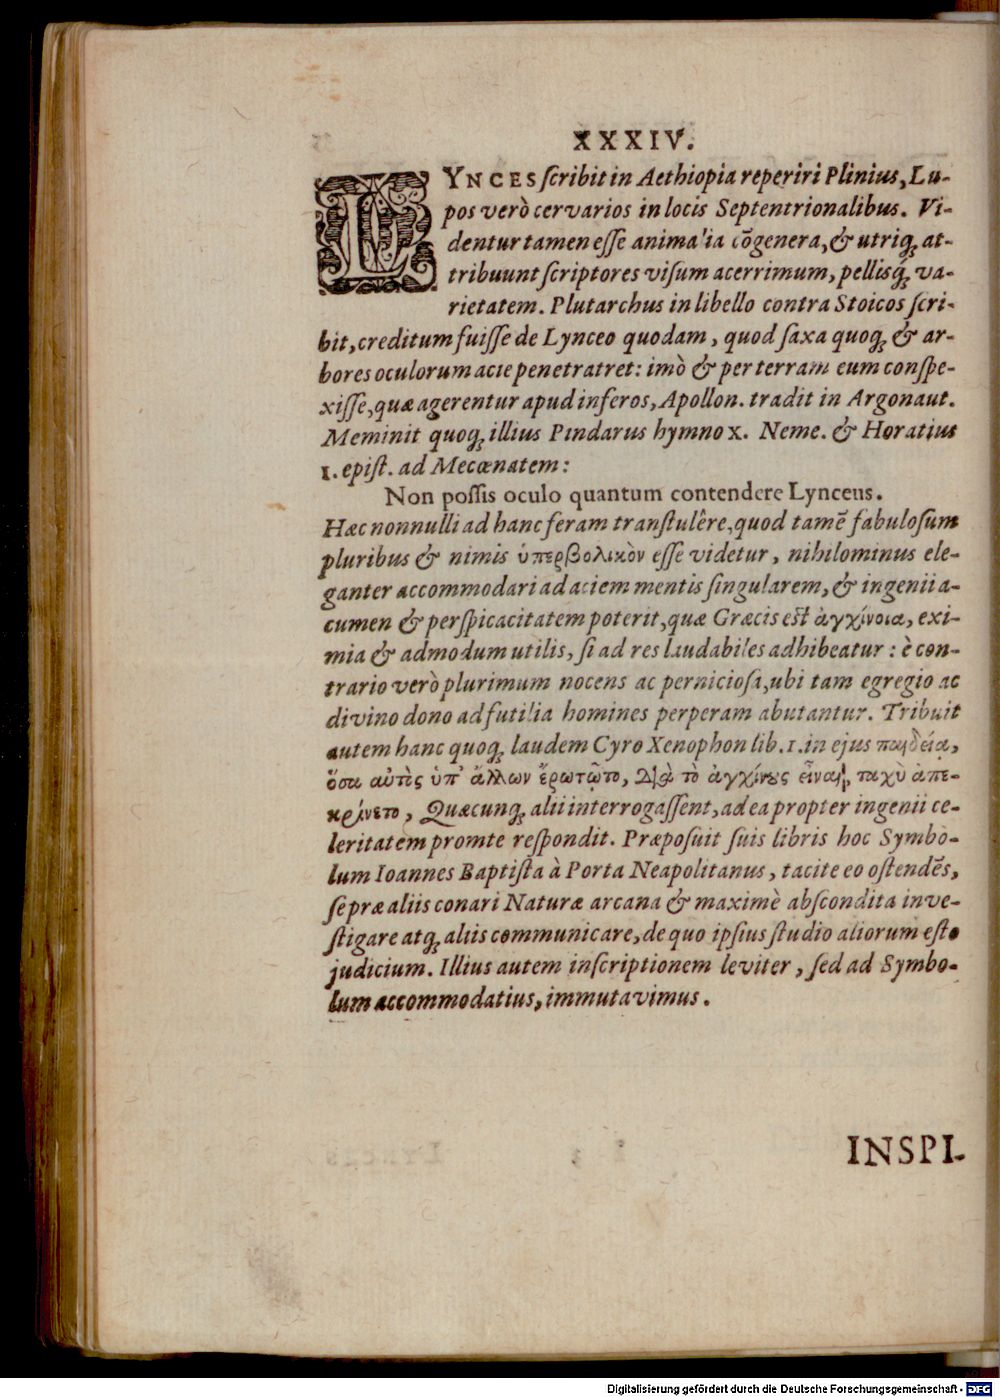 XXXIV.
LYNCES ſcribit in Aethiopia reperiri Plinius, Lu-
pos verò cervarios in locis Septentrionalibus. Vi-
dentur tamen eſſe animalia cōgenera, & utriq; at-
tribuunt ſcriptores viſum acerrimum, pellisq́; va-
rietatem. Plutarchus in libello contra Stoicos ſcri-
bit, creditum fuiſſe de Lynceo quodam, quod ſaxa quoq; & ar-
bores oculorum acie penetratret: imò & per terram eum conſpe-
xiſſe, quæ agerentur apud inferos, Apollon. tradit in Argonaut.
Meminit quoq; illius Pindarus hymno x. Neme. & Horatius
1. epiſt. ad Mecœnatem:
Non poſſis oculo quantum contendere Lynceus.
Hæc nonnulli ad hanc feram tranſtulêre, quod tamē fabuloſum
pluribus & nimis ὑπερβολικὸν eſſe videtur, nihilominus ele-
ganter accommodari ad aciem mentis ſingularem, & ingenii a-
cumen & perſpicacitatem poterit, quæ Græcis eſt ἀγχίνοια, exi-
mia & admodum utilis, ſi ad res laudabiles adhibeatur: è con-
trario verò plurimum nocens ac pernicioſa, ubi tam egregio ac
divino dono ad futilia homines perperam abutantur. Tribuit
autem hanc quoq; laudem Cyro Xenophon lib. 1. in ejus παιδείᾳ,
ὅσα αὐτὸς ὑπ᾽ ἄλλων ἔρωτῷτο, Διὰ τὸ ἀγχίνους εἶναι, ταχὺ ἀπε-
κρίνετο, Quæcunq; alii interrogaſſent, ad ea propter ingenii ce-
leritatem promte reſpondit. Præpoſuit ſuis libris hoc Symbo-
lum Ioannes Baptiſta à Porta Neapolitanus, tacite eo oſtendēs,
ſe præ aliis conari Naturæ arcana & maximè abſcondita inve-
ſtigare atq; aliis communicare, de quo ipſius ſtudio aliorum eſto
judicium. Illius autem inſcriptionem leviter, ſed ad Symbo-
lum accommodatius, immutavimus.
INSPI-
Digitalisierung gefördert durch die Deutsche Forschungsgemeinschaft - DFG